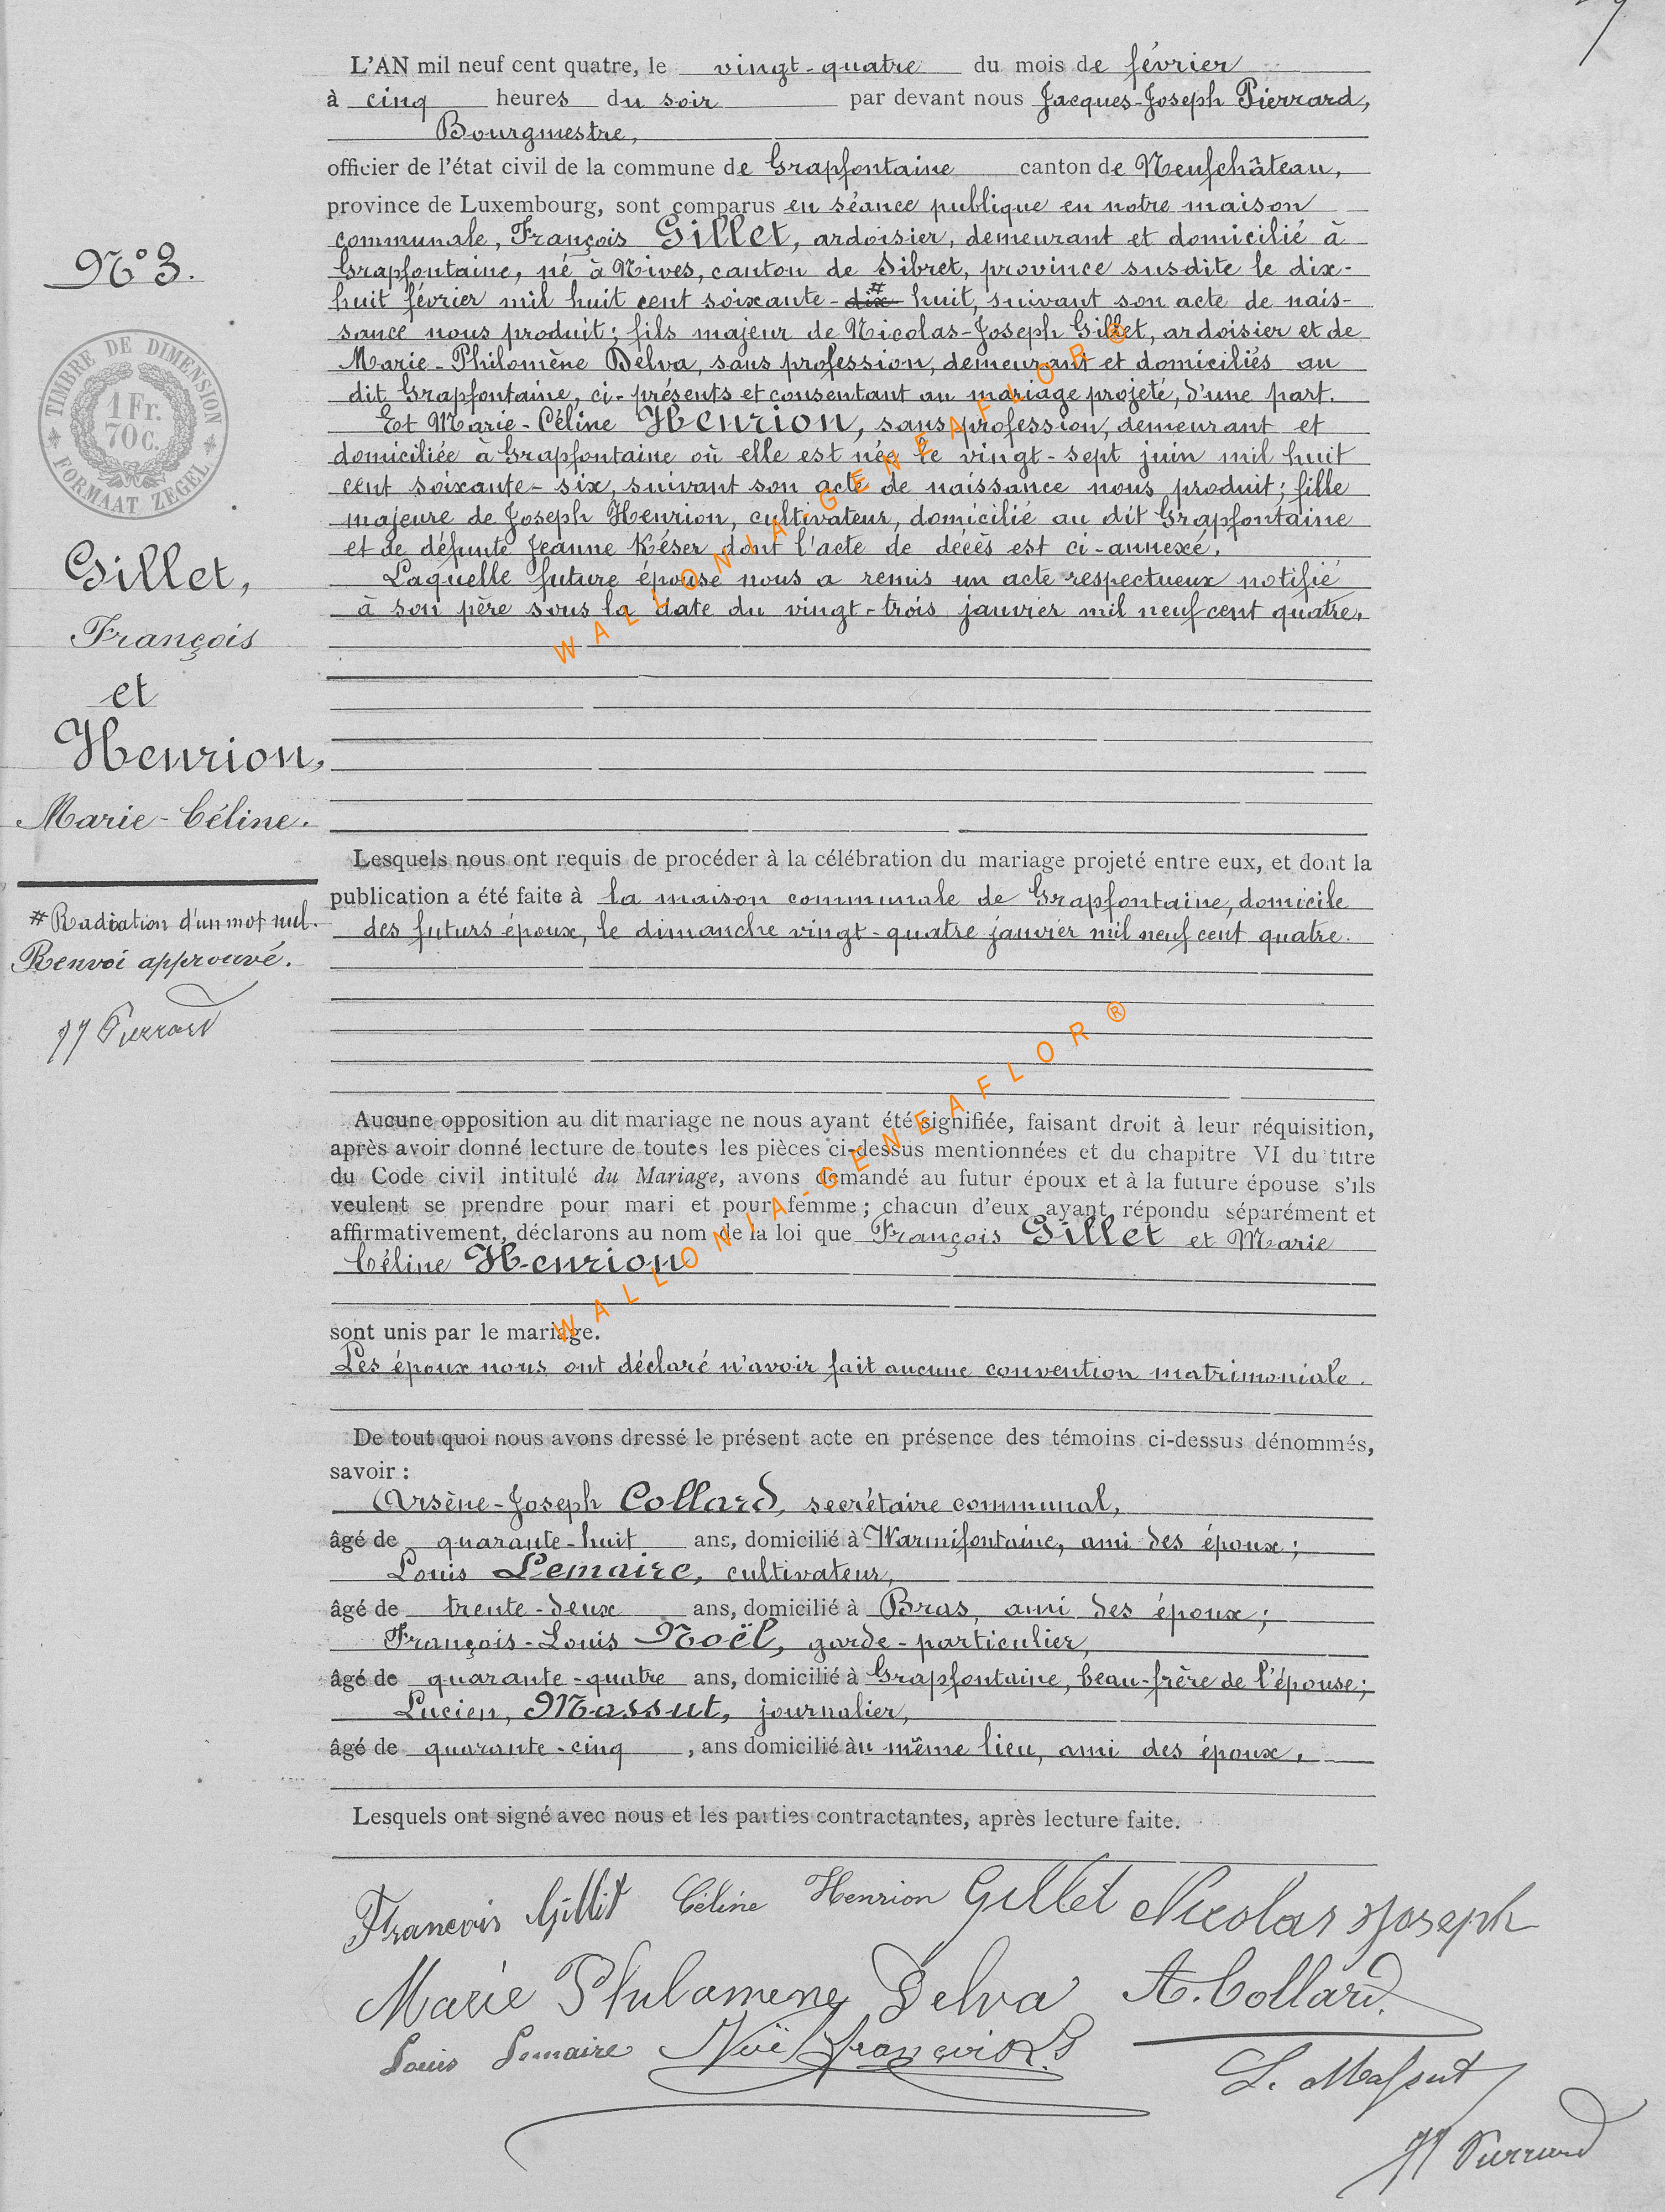 L'AN mil neuf cent quatre, le vingt-quatre du mois de février
à cinq heures du soir par devant nous Jacques-Joseph Pierrard,
Bourgmestre,
officier de l'état civil de la commune de Grapfontaine canton de Neufchâteau,
province de Luxembourg, sont comparus en séance publique en notre maison
communale, François Gillet, ardoisier, demeurant et domicilié à
Grapfontaine, né à Nives, canton de Sibret, province susdite le dix-
huit février mil huit cent soixante-dix # huit, suivant son acte de nais-
sance nous produit; fils majeur de Nicolas-Joseph Gillet, ardoisier et de
Marie-Philomène Delva, sans profession, demeurant et domiciliés au
dit Grapfontaine, ci-présents et consentant au mariage projeté, d'une part.
Et Marie-Céline Henrion, sans profession, demeurant et
domiciliée à Grapfontaine où elle est née le vingt-sept juin mil huit
cent soixante-six, suivant son acte de naissance nous produit; fille
majeure de Joseph Henrion, cultivateur, domicilié au dit Grapfontaine
et de défunte Jeanne Késer dont l'acte de décès est ci-annexé.
Laquelle future épouse nous a remis un acte respectueux notifié
à son père sous la date du vingt-trois janvier mil neuf cent quatre.
N° 3.
TIMBRE DE DIMENSION
1 Fr.
70 c.
FORMAAT ZEGEL
Gillet,
François
et
Henrion,
Marie-Céline.
# Radiation d'un mot nul.
Renvoi approuvé.
JJ Pierrard
Lesquels nous ont requis de procéder à la célébration du mariage projeté entre eux, et dont la
publication a été faite à la maison communale de Grapfontaine, domicile
des futurs époux, le dimanche vingt-quatre janvier mil neuf cent quatre.
Aucune opposition au dit mariage ne nous ayant été signifiée, faisant droit à leur réquisition,
après avoir donné lecture de toutes les pièces ci-dessus mentionnées et du chapitre VI du titre
du Code civil intitulé du Mariage, avons demandé au futur époux et à la future épouse s'ils
veulent se prendre pour mari et pour femme; chacun d'eux ayant répondu séparément et
affirmativement, déclarons au nom de la loi que François Gillet et Marie
Céline Henrion
sont unis par le mariage.
Les époux nous ont déclaré n'avoir fait aucune convention matrimoniale.
De tout quoi nous avons dressé le présent acte en présence des témoins ci-dessus dénommés,
savoir :
Arsène-Joseph Collard, secrétaire communal,
âgé de quarante-huit ans, domicilié à Warmifontaine, ami des époux;
Louis Lemaire, cultivateur,
âgé de trente-deux ans, domicilié à Bras, ami des époux;
François-Louis Noël, garde-particulier,
âgé de quarante-quatre ans, domicilié à Grapfontaine, beau-frère de l'épouse;
Lucien, Massut, journalier,
âgé de quarante-cinq, ans domicilié àu même lieu, ami des époux,
Lesquels ont signé avec nous et les parties contractantes, après lecture faite.
François Gillet Céline Henrion Gillet Nicolas Joseph
Marie Philomene Delva A. Collard.
Louis Lemaire Noël François L
L. Massut
JJ Pierrard
WALLONIA-GENEAFLOR®
WALLONIA-GENEAFLOR®